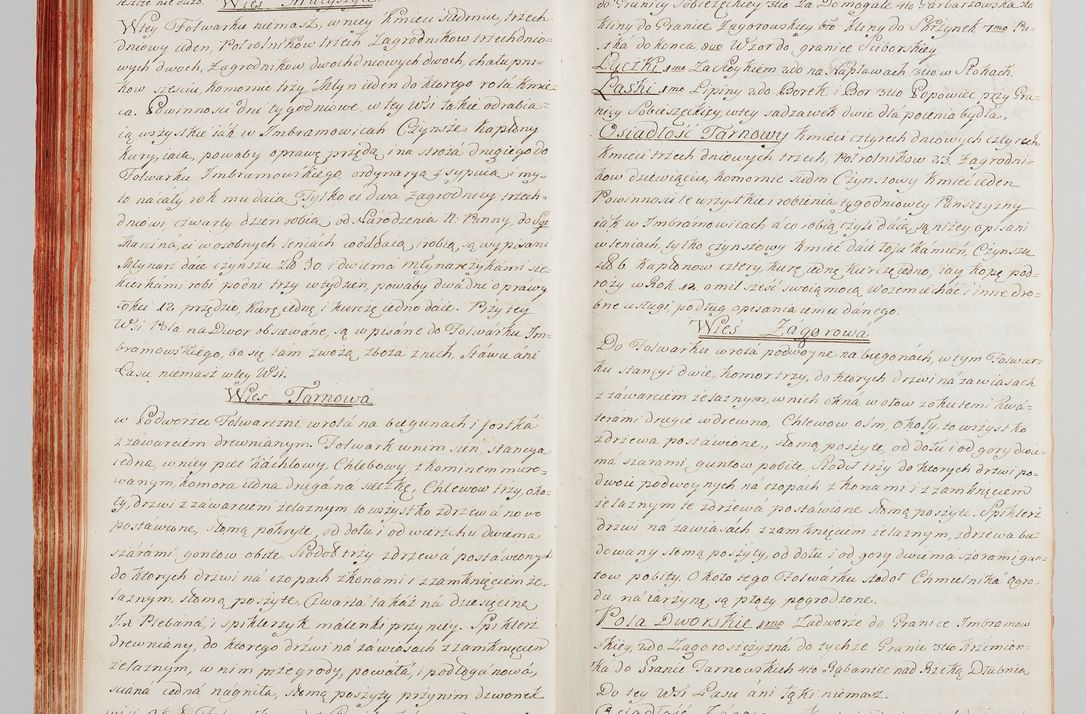 ieszcze nie dużo. Wies Małyszyce
Wtey Folwarku niemasz, w niey Kmieci siedmiu, trzech
dniowy ieden, Potrolnikow trzech Zagrodnikow trzechdnio=
wych dwoch, Zagrodnikow dwochdniowych dwoch, chałupni=
kow sześciu komornic trzy, Młyn ieden do ktorego rola kmie=
ca. Powinnosci dni tygodniowe w tey Wsi takie odrabia=
ią wszystkie iák w Imbramowicach Czynsze, kapłony
kury, iaia, powaby oprawę przędą i na stroża drugiego do
Folwarku Imbramowskiego, ordynaryą zsypuią i my=
to na cały rok mu daią Tylko ci dwa Zagrodnicy trzech=
dniowi, czwarty dzien robią, od Narodzenia N: Panny, do Sgo
Marcina, ci w osobnych leniach co daią, i robią, są wypisani
Młynarz daie czynszu Zł 30. i dwiema młynarzykami sie=
kierkami robi podni trzy w tydzien, powaby dwa dni oprawy
łokci 12. przędzie, kurę iednę i kurczę iedno daie. Przy tey
Wsi Pola na Dwor obsiewane, są wpisane do Folwarku Im=
bramowskiego, bo się tam zwożą zboża z nich, Stawu ani
Lasu niemasz w tey Wsi.
Wies Tarnowá
w Podworzec Folwarczne wrota ná biegunach i fortká
z zawarciem drewnianym. Folwark w nim sien, stancya
iedna, w niey piec kachlowy, Chlebowy, z kominem muro=
wanym komora iedna druga ná sieczkę, Chlewow trzy, oko=
ły, drzwi z zawarciem żelaznym to wszystko z drzewá nowo
postawione, słomą pokryte, od dołu i od wierzchu dwiema
szarámi gontow obite, Stodoł trzy z drzewá postawionych
do ktorych drzwi ná czopach z konami i z zamknięciem że=
laznym, słomą poszyte, Czwarta takáż ná dziesięcinę
Jx Plebana, i spiklerzyk malenki przy niey. Spiklerz
drewniany, do ktorego drzwi ná zawiasach z zamknięciem
żelaznym, w nim przegrody, powała, i podłoga nowá,
sciáná iedná nagniła, słomą poszyty przy nim dzwonek
do Granicy Sobieżęckiey 3tio Za Domogałę 4to Garbarzowska do
kliny do Granic Zagorowskiey 6to kliny do Skrzynek 7mo Pu=
stká do konca 8vo Wzor do granice Suborskiey.
Łączki 1mo Za Stoykiem 2do na Kapławach 3tio w Stokach.
Láski 1mo Lipiny 2do Borek i Bor 3tio Popowiec przy Gra=
nicy Sobieszęckiey, w tey sadzawek dwie dla poienia bydłá.
Osiadłość Tarnowy Kmieci czterech dniowych czterech
Kmieci trzech dniowych trzech, Potrolnikow 23. Zagrodni=
kow dziewięciu, komornic siedm Czynszowy Kmieć ieden
Powinnosci te wszystkie robienia tygodniowey Panszczyzny
iák w Imbramowicach á co robią, czyli daią są niżey opisani
w leniach, tylko czynszowy kmieć daie łoju kamień, Czynszu
zł 6. kapłonow cztery, kurę iednę kurczę iedno, iay kopę pod=
roży w Rok 12. o mil sześć swoią mocą wozem iechać i inne dro=
bne usługi podług opisania iemu danego.
Wies Zagorowa
Do Folwarku wrotá podwoyne na biegonách, w tym Folwar=
ku stancyi dwie, komor trzy, do ktorych drzwi ná zawiasach
z zawarciem żelaznym, w nich okná w ołow z okutemi kwá=
terámi drugie w drewno, Chlewow osm, okoły to wszystko
z drzewa postawione,, słomą poszyte, od dołu i od gory dwie=
má szarami, guntow pobite Stodoł trzy do ktorych drzwi po=
dwoie podwoynych ná czopách z konami i z zamknięciem
żelaznym te z drzewá postawione słomą poszyte. Spiklerz
drzwi na zawiasách z zamknięciem żelaznym, z drzewá bu=
dowany słomą poszyty, od dołu i od gory dwiemá szorami gun=
tow pobity. Około tego Folwárku stodoł Chmielniká Ogro=
du ná iarzynę są płoty pogrodzone.
Pola Dworskie 1mo Zadworze do Granice Imbramow
skiey, 2do Zagoroszczyzná do tychże Granic 3tio Krzemion=
ka do Granic Tarnowskich 4to Rąbaniec nad Rzeką Dłubnia
Do tey Wsi Lasu áni łąki niemasz.